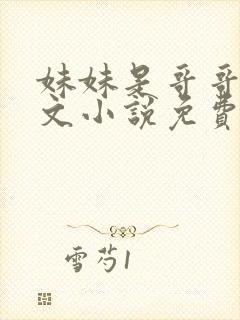 妹妹是哥哥
文小說免費
雪芍1